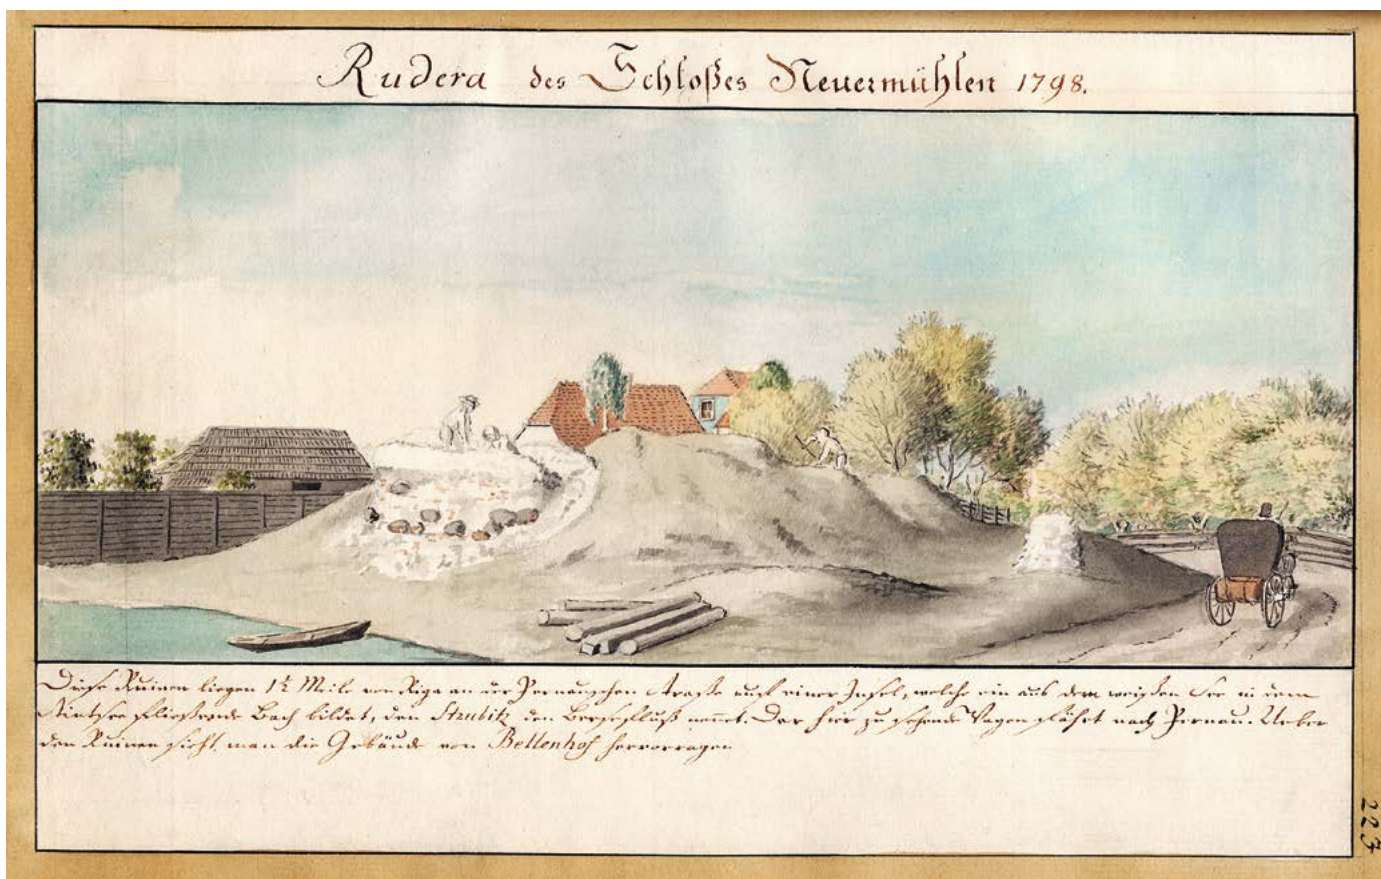 Rudera des Schloßes Neuermühlen 1798.
Diese Ruinen liegen 1½ Meile von Riga an der Pernauschen Straße auf einer Insel, welche ein aus dem weißen See in dem
Stintsee fließende Bach bildet, den Strubitz den Bergefluß nennt. Der hier zu sehende Wagen fährt nach Pernau. Ueber
den Ruinen sieht man die Gebäude von Bellenhof hervorragen
223